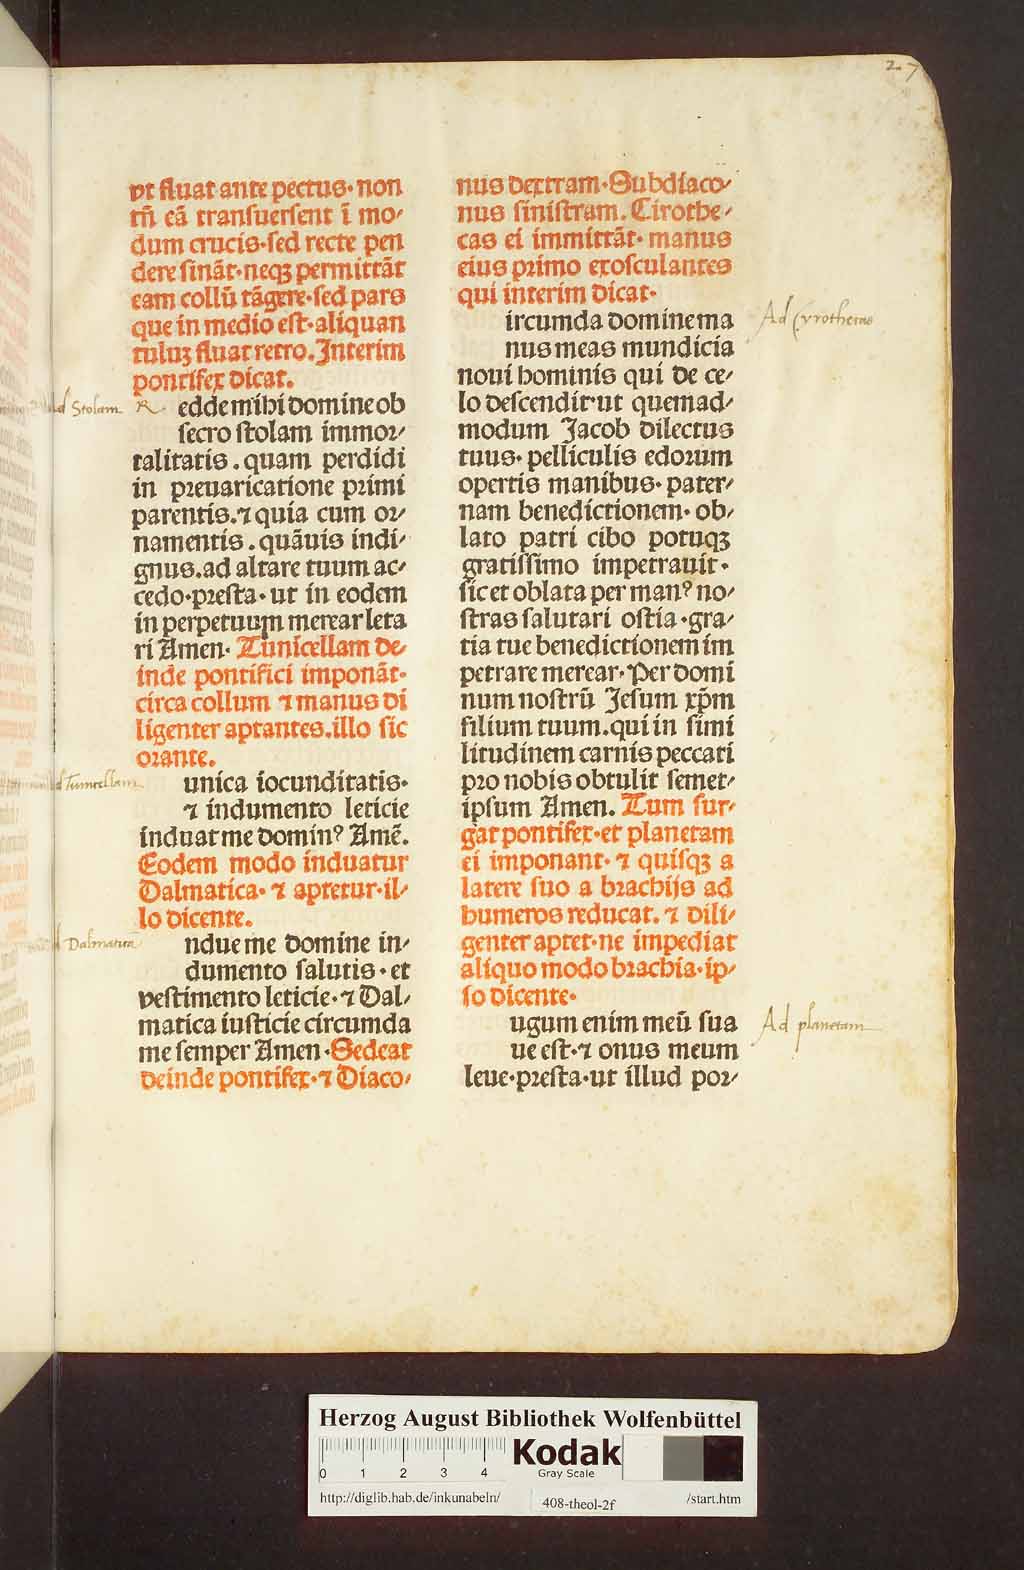 27
vt fluat ante pectus· non
tñ eã transuersent ĩ mo⸗
dum crucis·sed recte pen
dere sinãt·neqꝫ permittãt
eam collũ tãgere·sed pars
que in medio est·aliquan
tuluꝫ fluat retro. Interim
pontifex dicat.
ad Stolam R.
edde mihi domine ob
secro stolam immor⸗
talitatis. quam perdidi
in preuaricatione primi
parentis.⁊ quia cum or⸗
namentis. quãuis indi⸗
gnus.ad altare tuum ac⸗
cedo·presta·ut in eodem
in perpetuum merear leta
ri Amen· Tunicellam de⸗
inde pontifici imponãt·
circa collum ⁊ manus di
ligenter aptantes.illo sic
orante.
ad Tunicellam
unica iocunditatis·
⁊ indumento leticie
induat me dominꝰ Amẽ.
Eodem modo induatur
Dalmatica· ⁊ aptetur·il⸗
lo dicente.
ad Dalmaticã
ndue me domine in⸗
dumento salutis· et
vestimento leticie·⁊ Dal⸗
matica iusticie circumda
me semper Amen·Sedeat
deinde pontifex·⁊ Diaco⸗
nus dextram·Subdiaco⸗
nus sinistram. Cirothe⸗
cas ei immittãt· manus
eius primo exosculantes
qui interim dicat·
Ad Cyrothecas
ircumda domine ma
nus meas mundicia
noui hominis qui de ce⸗
lo descendit·ut quemad⸗
modum Jacob dilectus
tuus· pelliculis edorum
opertis manibus· pater⸗
nam benedictionem· ob⸗
lato patri cibo potuqꝫ
gratissimo impetrauit·
sic et oblata per manꝰ no⸗
stras salutari ostia·gra⸗
tia tue benedictionem im
petrare merear·Per domi
num nostrũ Jesum xp̃m
filium tuum.qui in simi
litudinem carnis peccati
pro nobis obtulit semet⸗
ipsum Amen. Tum sur⸗
gat pontifex·et planetam
ei imponant· ⁊ quisqꝫ a
latere suo a brachijs ad
humeros reducat. ⁊ dili⸗
genter aptet·ne impediat
aliquo modo brachia·ip⸗
so dicente·
Ad planetam
ugum enim meũ sua
ue est·⁊ onus meum
leue·presta·ut illud por⸗
Herzog August Bibliothek Wolfenbüttel
0 1 2 3 4
Kodak
Gray Scale
http://diglib.hab.de/inkunabeln/ 408-theol-2f /start.htm